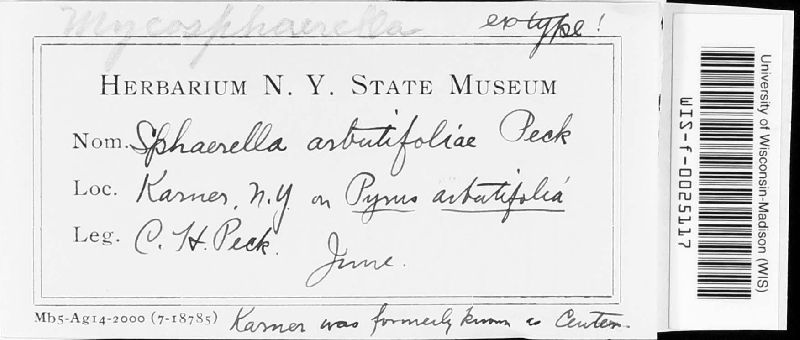 Mycosphaerella
ex type!
HERBARIUM N. Y. STATE MUSEUM
Nom. Sphaerella arbutifoliae Peck
Loc. Karner, N.Y. on Pyrus arbutifolia
Leg. C. H. Peck. June.
Mb5-Ag14-2000 (7-18785) Karner was formerly known as Center.
University of Wisconsin-Madison (WIS)
WIS-f-0025117